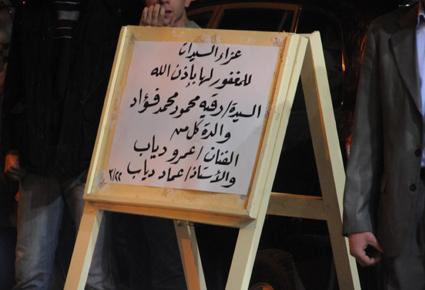 عزاء السيدات
للمغفور لها بإذن الله
السيدة/ رقيه محمود محمد فؤاد
والدة كل من
الفنان/ عمرو دياب
والأستاذ/ عماد دياب ٣/٢٢